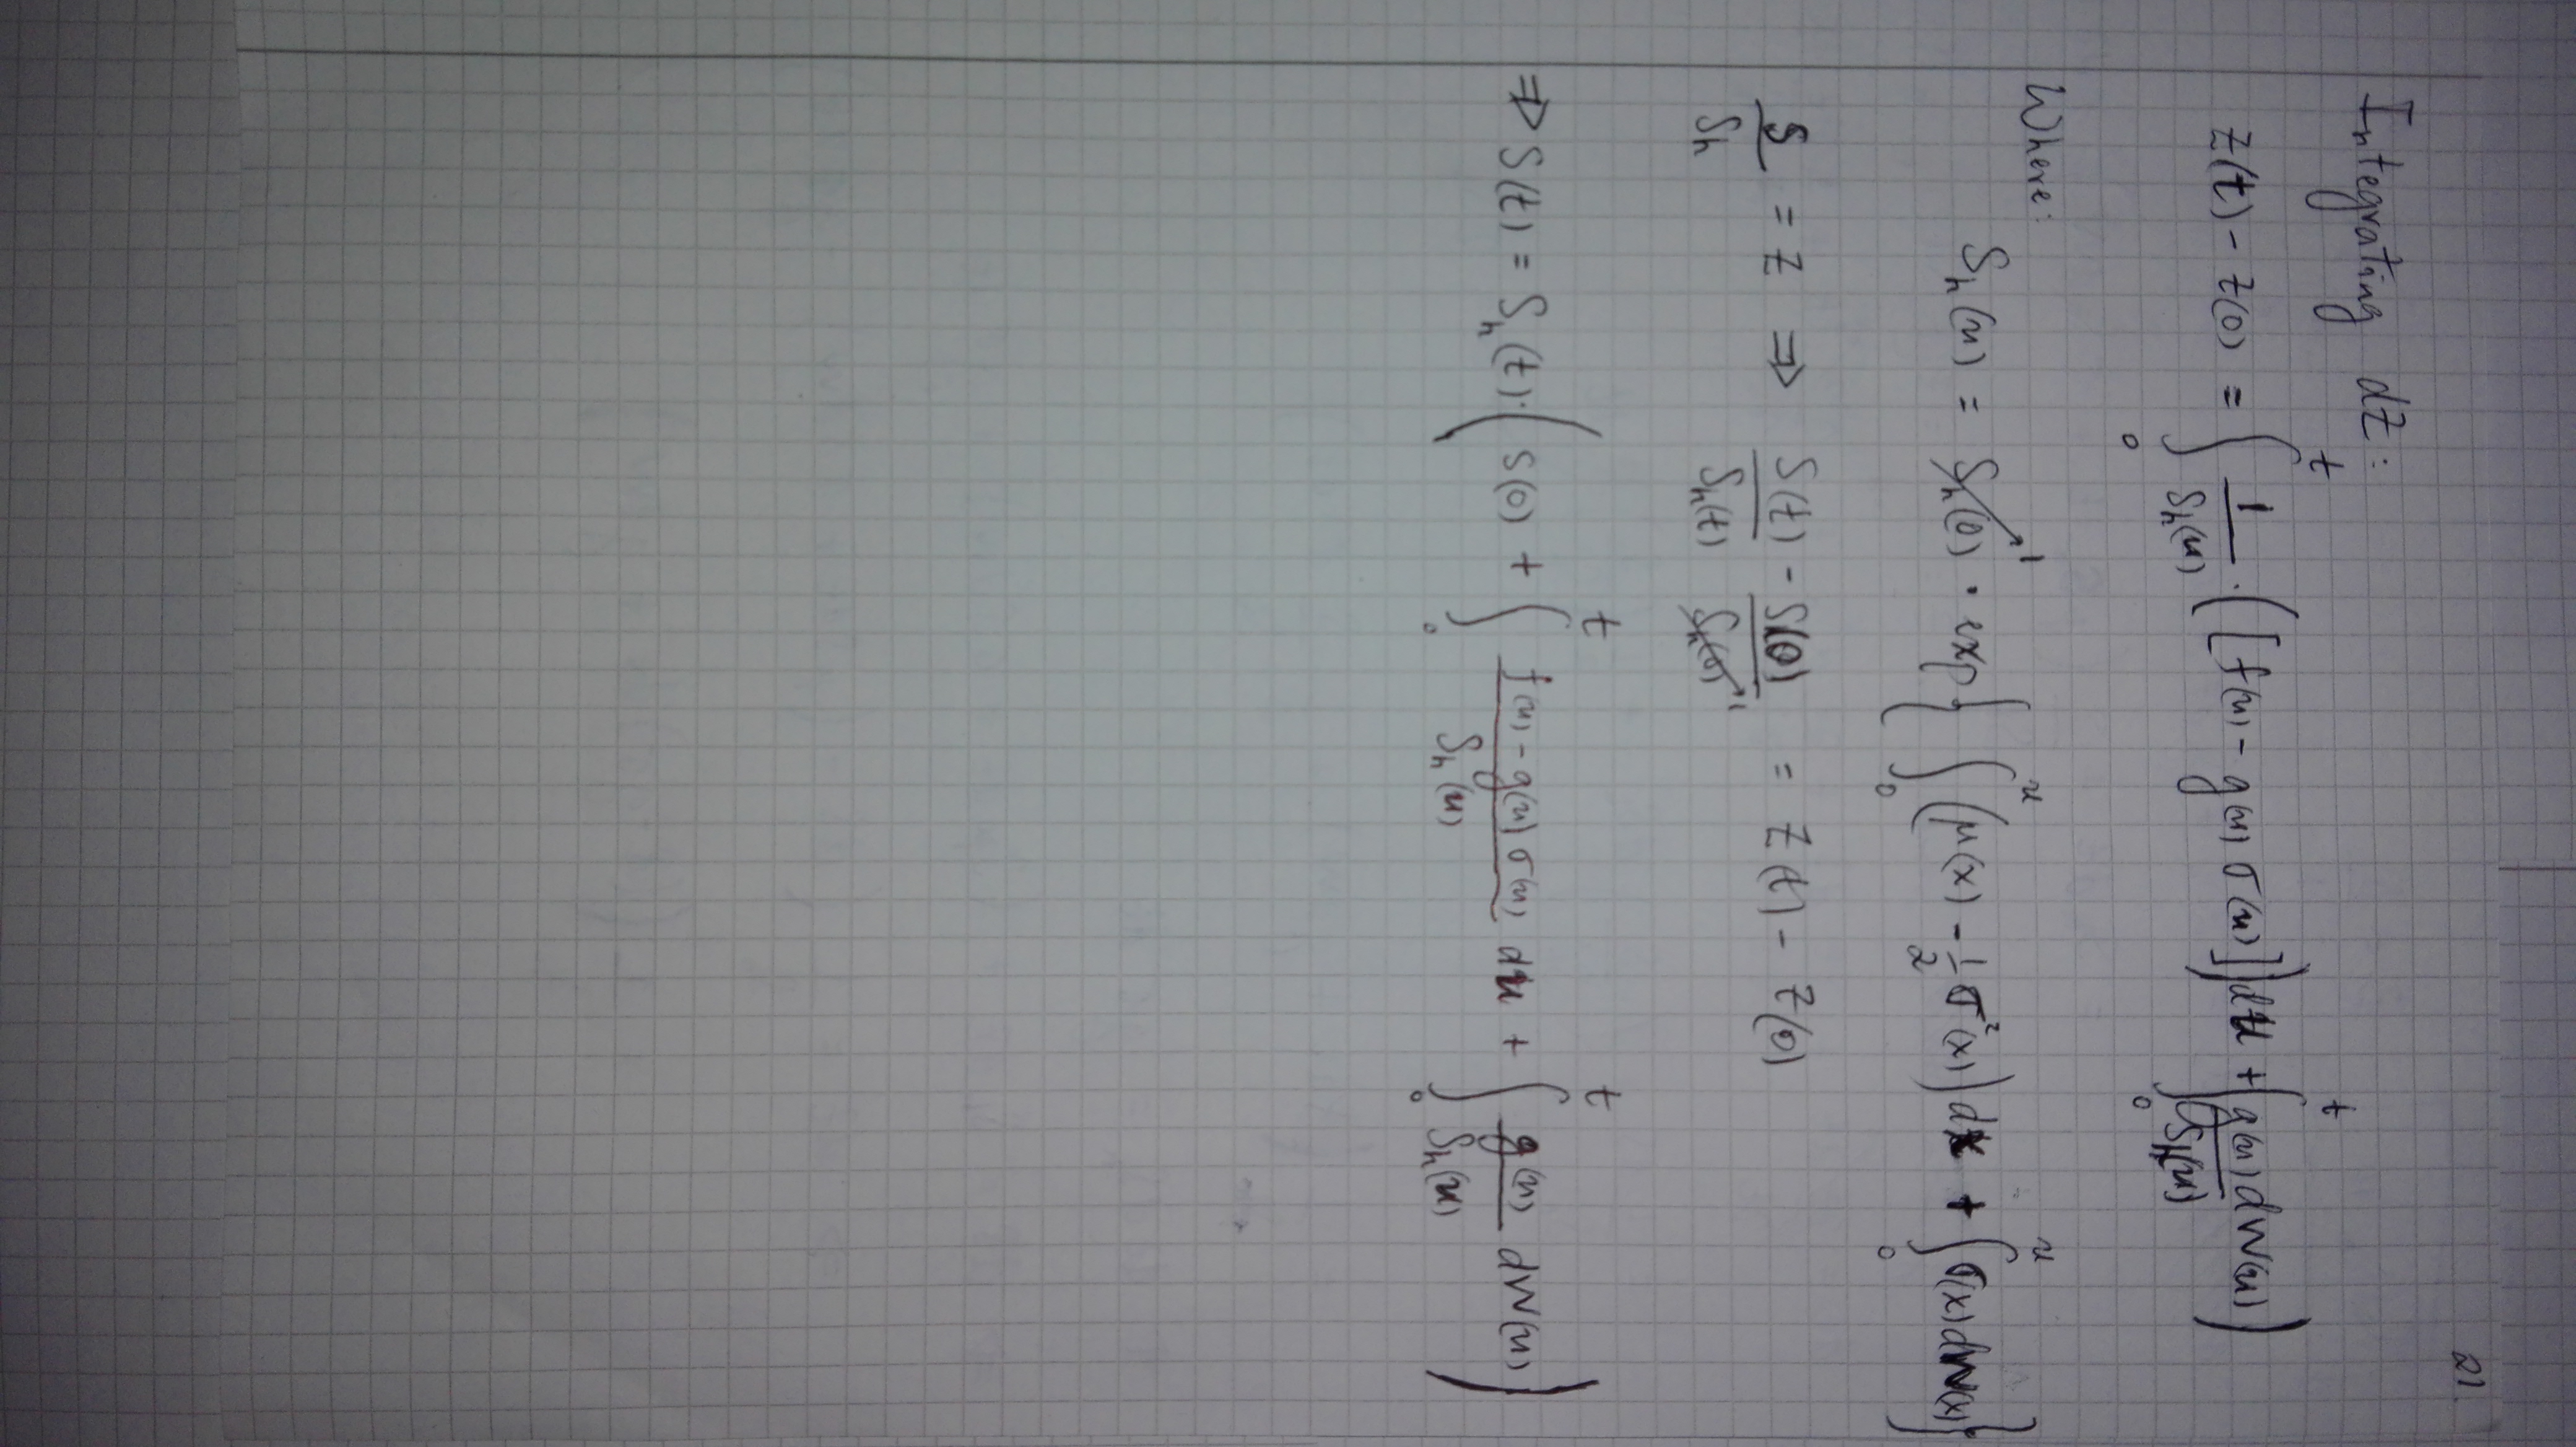 2).
Integrating dZ:
Z(t) - Z(0) = ∫₀ᵗ 1/S_h(u) · ([f(u) - g(u) σ(u)])du + ∫₀ᵗ g(u)/S_h(u) dW(u))
Where:
S_h(u) = S_h(0)→1 · exp{ ∫₀ᵘ (μ(x) - 1/2 σ²(x))dx + ∫₀ᵘ σ(x)dW(x)}
S/S_h = Z ⇒ S(t)/S_h(t) - S(0)/S_h(0)→1 = Z(t) - Z(0)
⇒ S(t) = S_h(t)·( S(0) + ∫₀ᵗ (f(u) - g(u) σ(u))/S_h(u) du + ∫₀ᵗ g(u)/S_h(u) dW(u) )